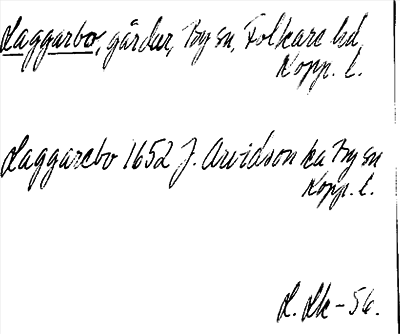 Laggarbo, gårdar, By sn, Folkare hd,
Kopp. l.
Laggarebo 1652 J. Arvidson ka By sn
Kopp. l.
L. Lk - 56.